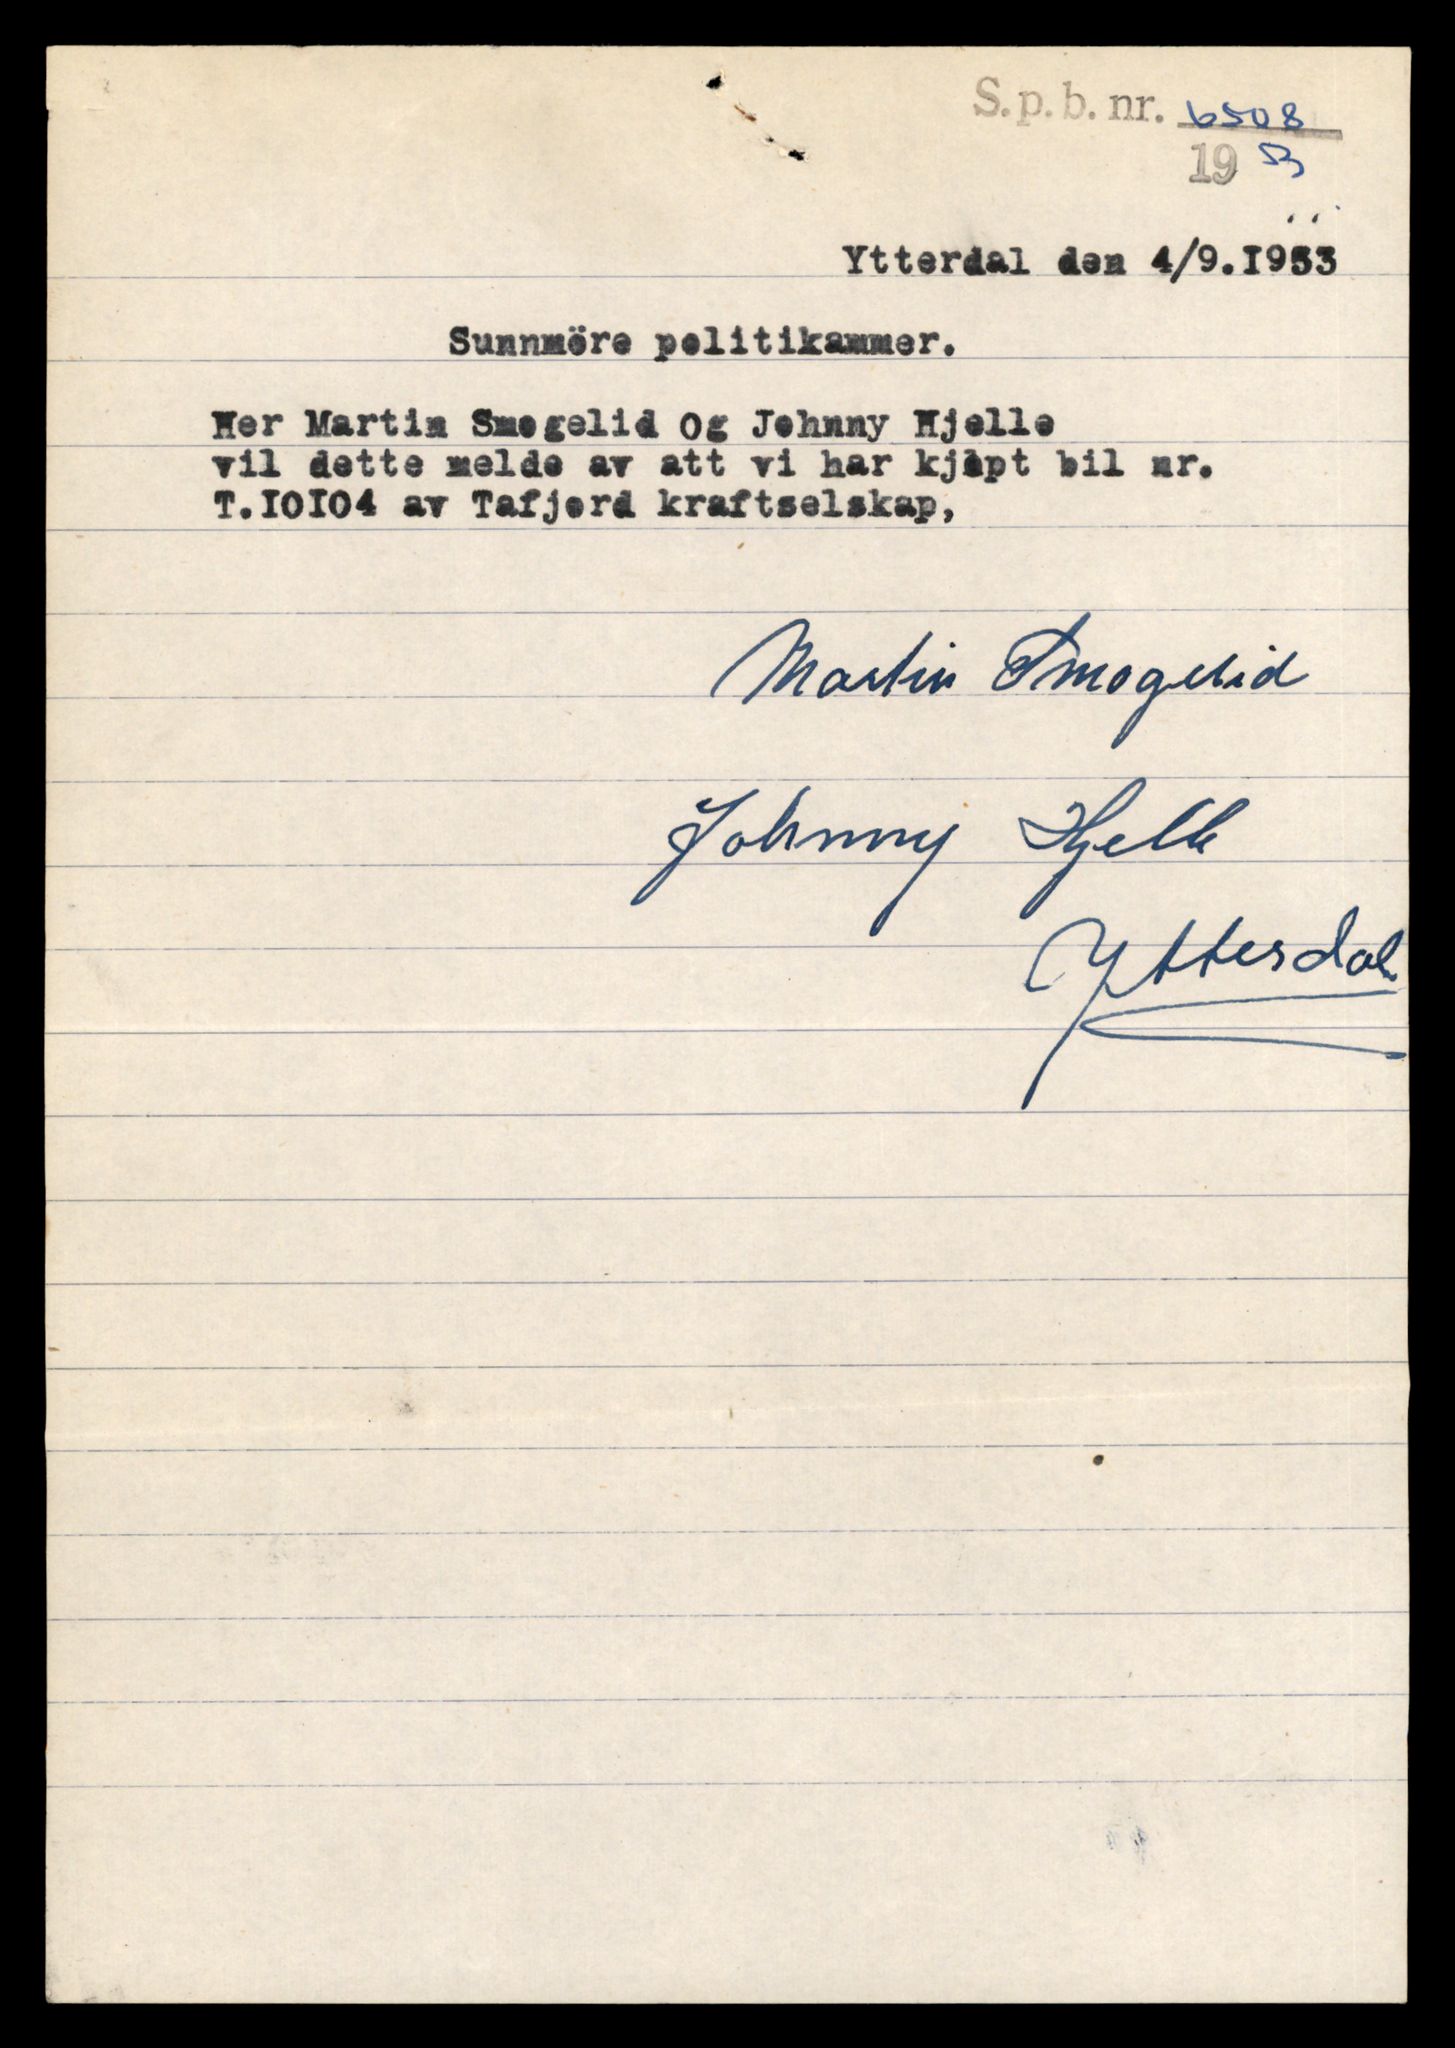 S.p.b. nr. 6508
19 53
Ytterdal den 4/9.I953
Sunnmöre politikammer.
Her Martin Smogelid og Johnny Hjelle
vil dette melde av att vi har kjöpt bil nr.
T.IOIO4 av Tafjord kraftselskap,
Martin Smogelid
Johnny Hjelle
Ytterdal.